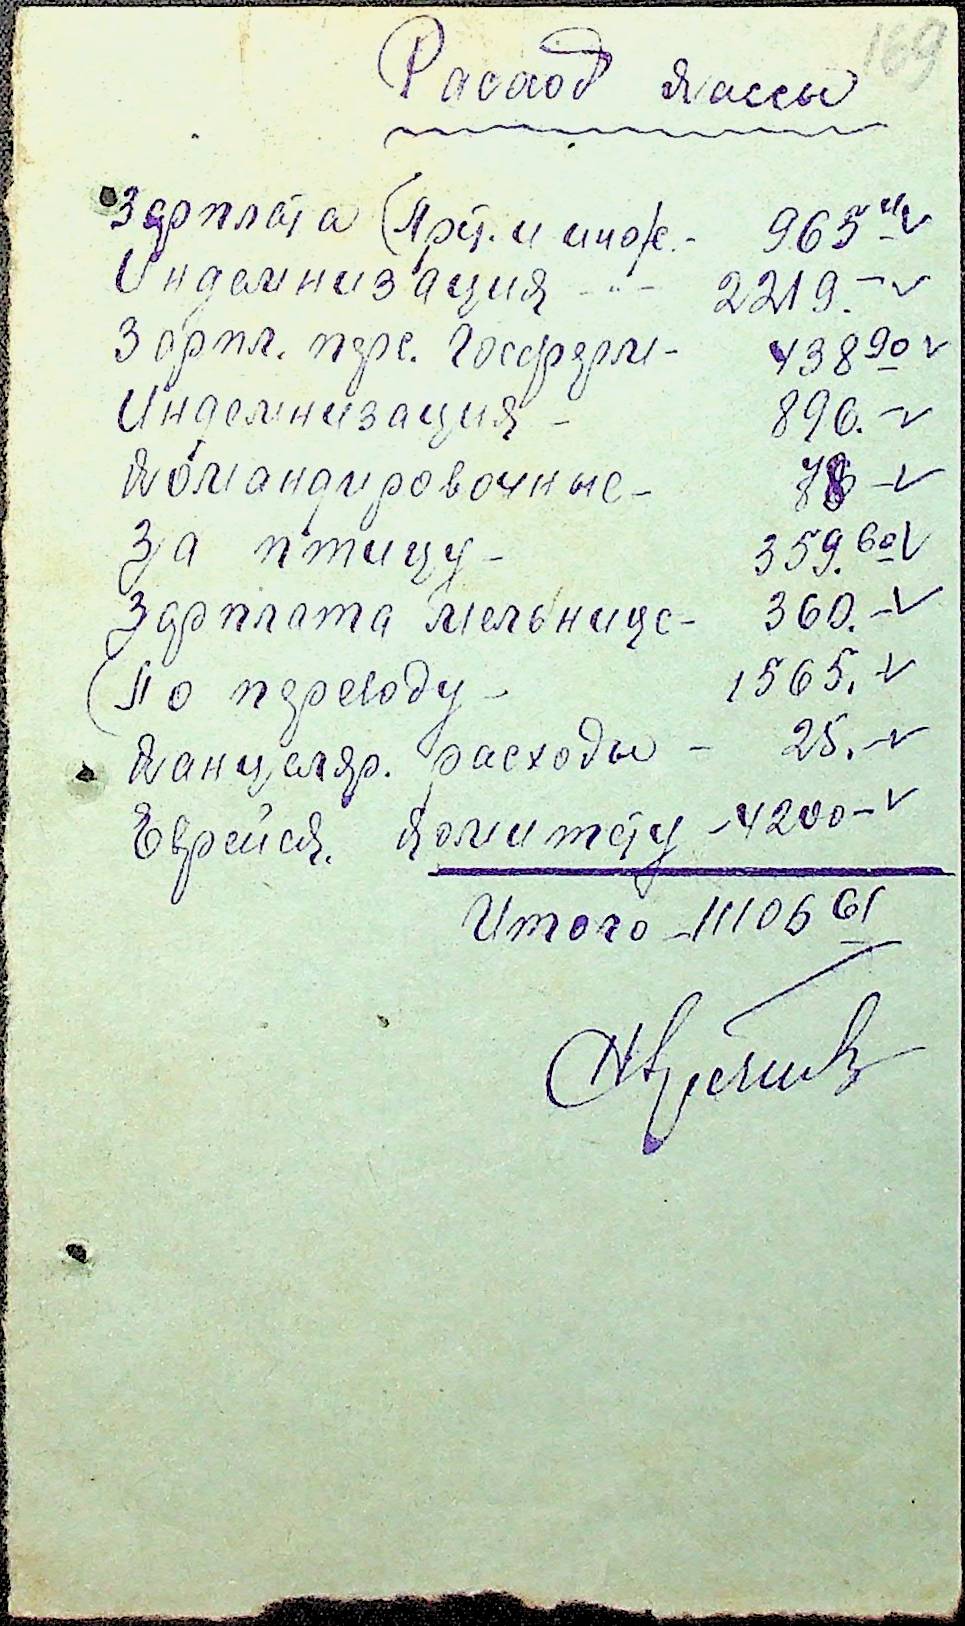 169
Расход кассы
Зарплата (Арт. и инж. - 965 11
Индемнизация - " - 2219. -
Зарпл. перс. Госферм - 438 90
Индемнизация - 896. -
Командировочные - 78 -
За птицу - 359. 60
Зарплата мельнице - 360. -
(По переводу - 1565. -
Канцеляр. расходы - 25. -
Еврейск. Комитету - 4200 -
Итого - 11106 61